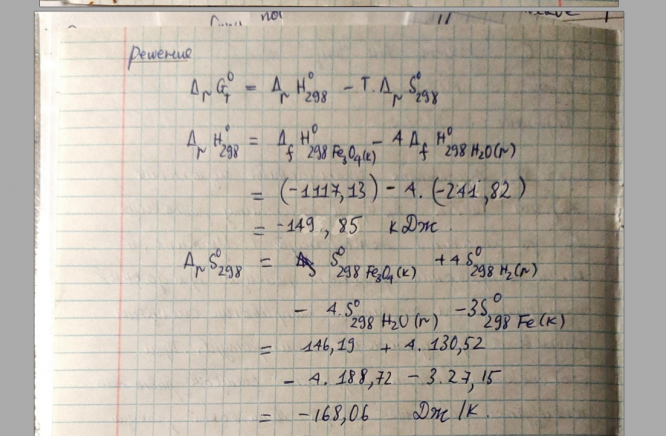 Решение
Δ_r G⁰_T = Δ_r H⁰_298 - T. Δ_r S⁰_298
Δ_r H⁰_298 = Δ_f H⁰_298 Fe₃O₄(к) - 4 Δ_f H⁰_298 H₂O(г)
= (-1117,13) - 4. (-241,82)
= -149,85 кДж.
Δ_r S⁰_298 = S⁰_298 Fe₃O₄(к) + 4 S⁰_298 H₂(г)
- 4. S⁰_298 H₂O(г) - 3S⁰_298 Fe(к)
= 146,19 + 4. 130,52
- 4. 188,72 - 3. 27,15
= -168,06 Дж/к.